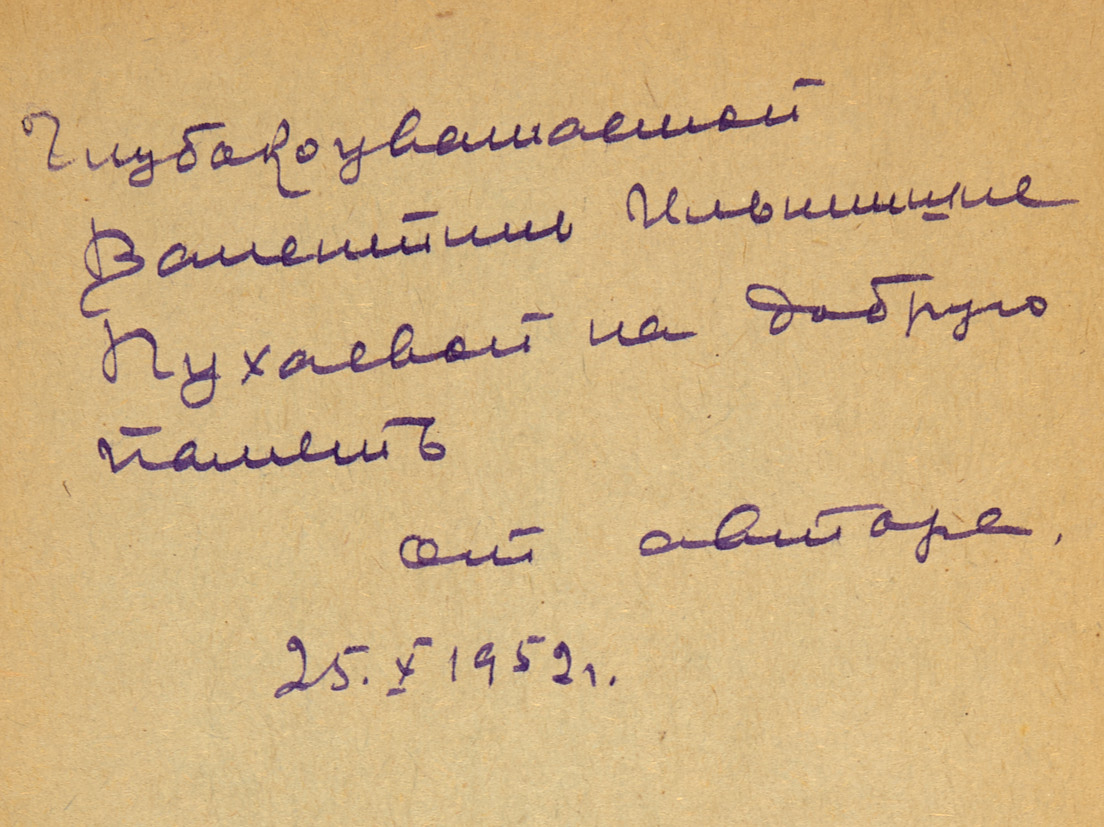 Глубокоуважаемой
Валентине Ильиничне
Пухаевой на добрую
память
от автора.
25.X 1952 г.